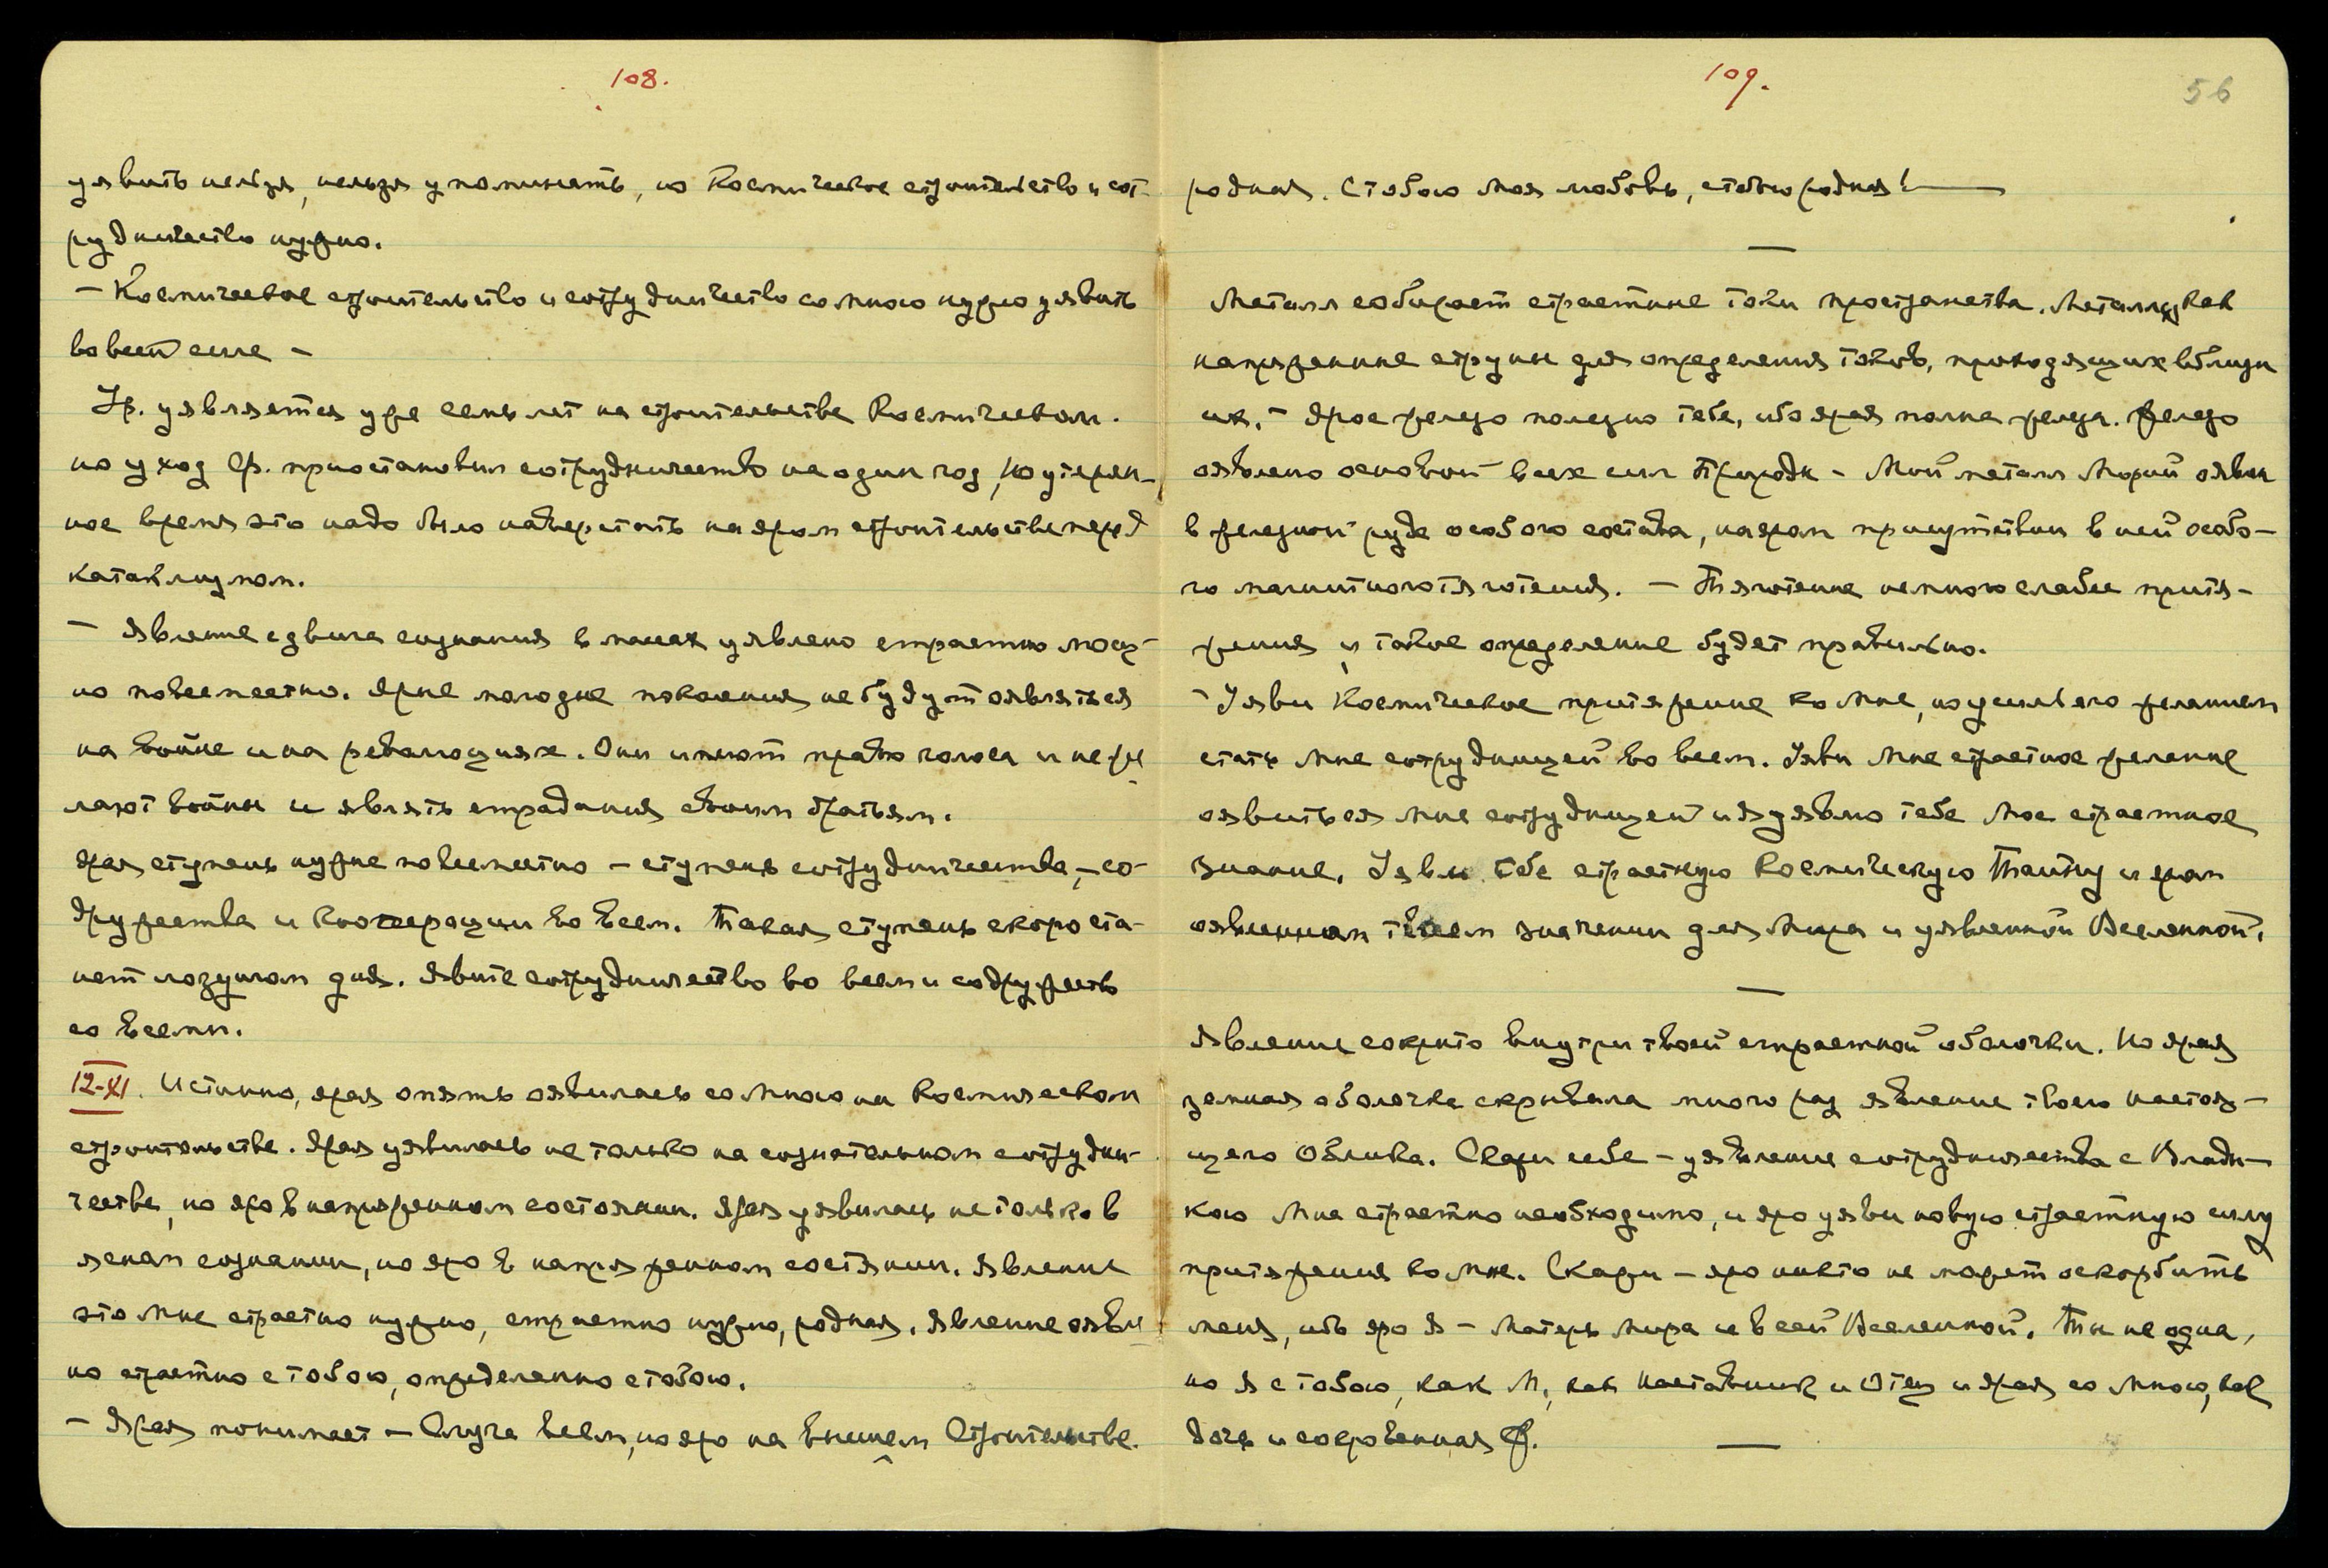 108.
уявить нельзя, нельзя упоминать, но Космическое строительство и сот-
рудничество нужно.
— Космическое строительство и сотрудничество со мною нужно уявить
во всей силе —
Ур. уявляется уже семь лет на строительстве Космическом.
но уход Ф. приостановил сотрудничество не один год, но утерян-
ное время это надо было наверстать на яром строительстве перед
катаклизмом.
— Явление сдвига сознания в массах уявлено страстно мощ-
но повсеместно. Ярые молодые поколения не будут оявляться
на войне и на революциях. Они имеют право голоса и не же
лают войны и являть страдания своим братьям.
Ярая ступень нужна повсеместно — ступень сотрудничества, — со-
дружества и Кооперации во всем. Такая ступень скоро ста-
нет лозунгом дня. Явите сотрудничество во всем и содружество
со всеми.
12-XI. Истинно, ярая опять оявилась со Мною на Космическом
строительстве. Ярая уявилась не только на сознательном сотрудни-
честве, но яро в напряженном состоянии. Ярая уявилась не только в
ясном сознании, но яро в напряженном состянии. Явление
это Мне страстно нужно, страстно нужно, родная. Явление оявлено
но страстно с тобою, определенно с тобою.
— Ярая понимает — Слуга всем, но яро на внешнем Строительстве.
109.
56
родная. С тобою Моя любовь, с тобою родная! —
—
Металл собирает страстные токи пространства. Металлы, как
напряженные струны для определения токов, проходящих вблизи
их. — Ярое железо полезно тебе, ибо ярая полна железа. Железо
оявлено основой всех сил Природы — Мой металл Морий оявлен
в железной руде особого состава, на яром присутствии в ней особо-
го магнитного тяготения. — Тяготение немного слабее притя-
жения и такое определение будет правильно.
— Уяви Космическое притяжение ко Мне, но усиль его желанием
стать Мне сотрудницей во всем. Уяви Мне страстное желание
оявиться Мне сотрудницей и Я уявлю тебе Мое страстное
Знание. Уявлю тебе страстную Космическую Тайну и яром
оявленном твоем значении для Мира и уявленной Вселенной.
—
Явление сокрыто внутри твоей страстной оболочки. Но ярая
земная оболочка скрывала много раз явление твоего настоя-
щего Облика. Скажи себе — уявление сотрудничества с Влады-
кою Мне страстно необходимо, и яро уяви новую страстную силу
притяжения ко Мне. Скажи — яро никто не может оскорбить
меня, ибо яро Я — Матерь Мира и всей Вселенной. Ты не одна,
но Я с тобою, как М, как Наставник и Отец и ярая со Мною, как
дочь и сокровенная Ф. —